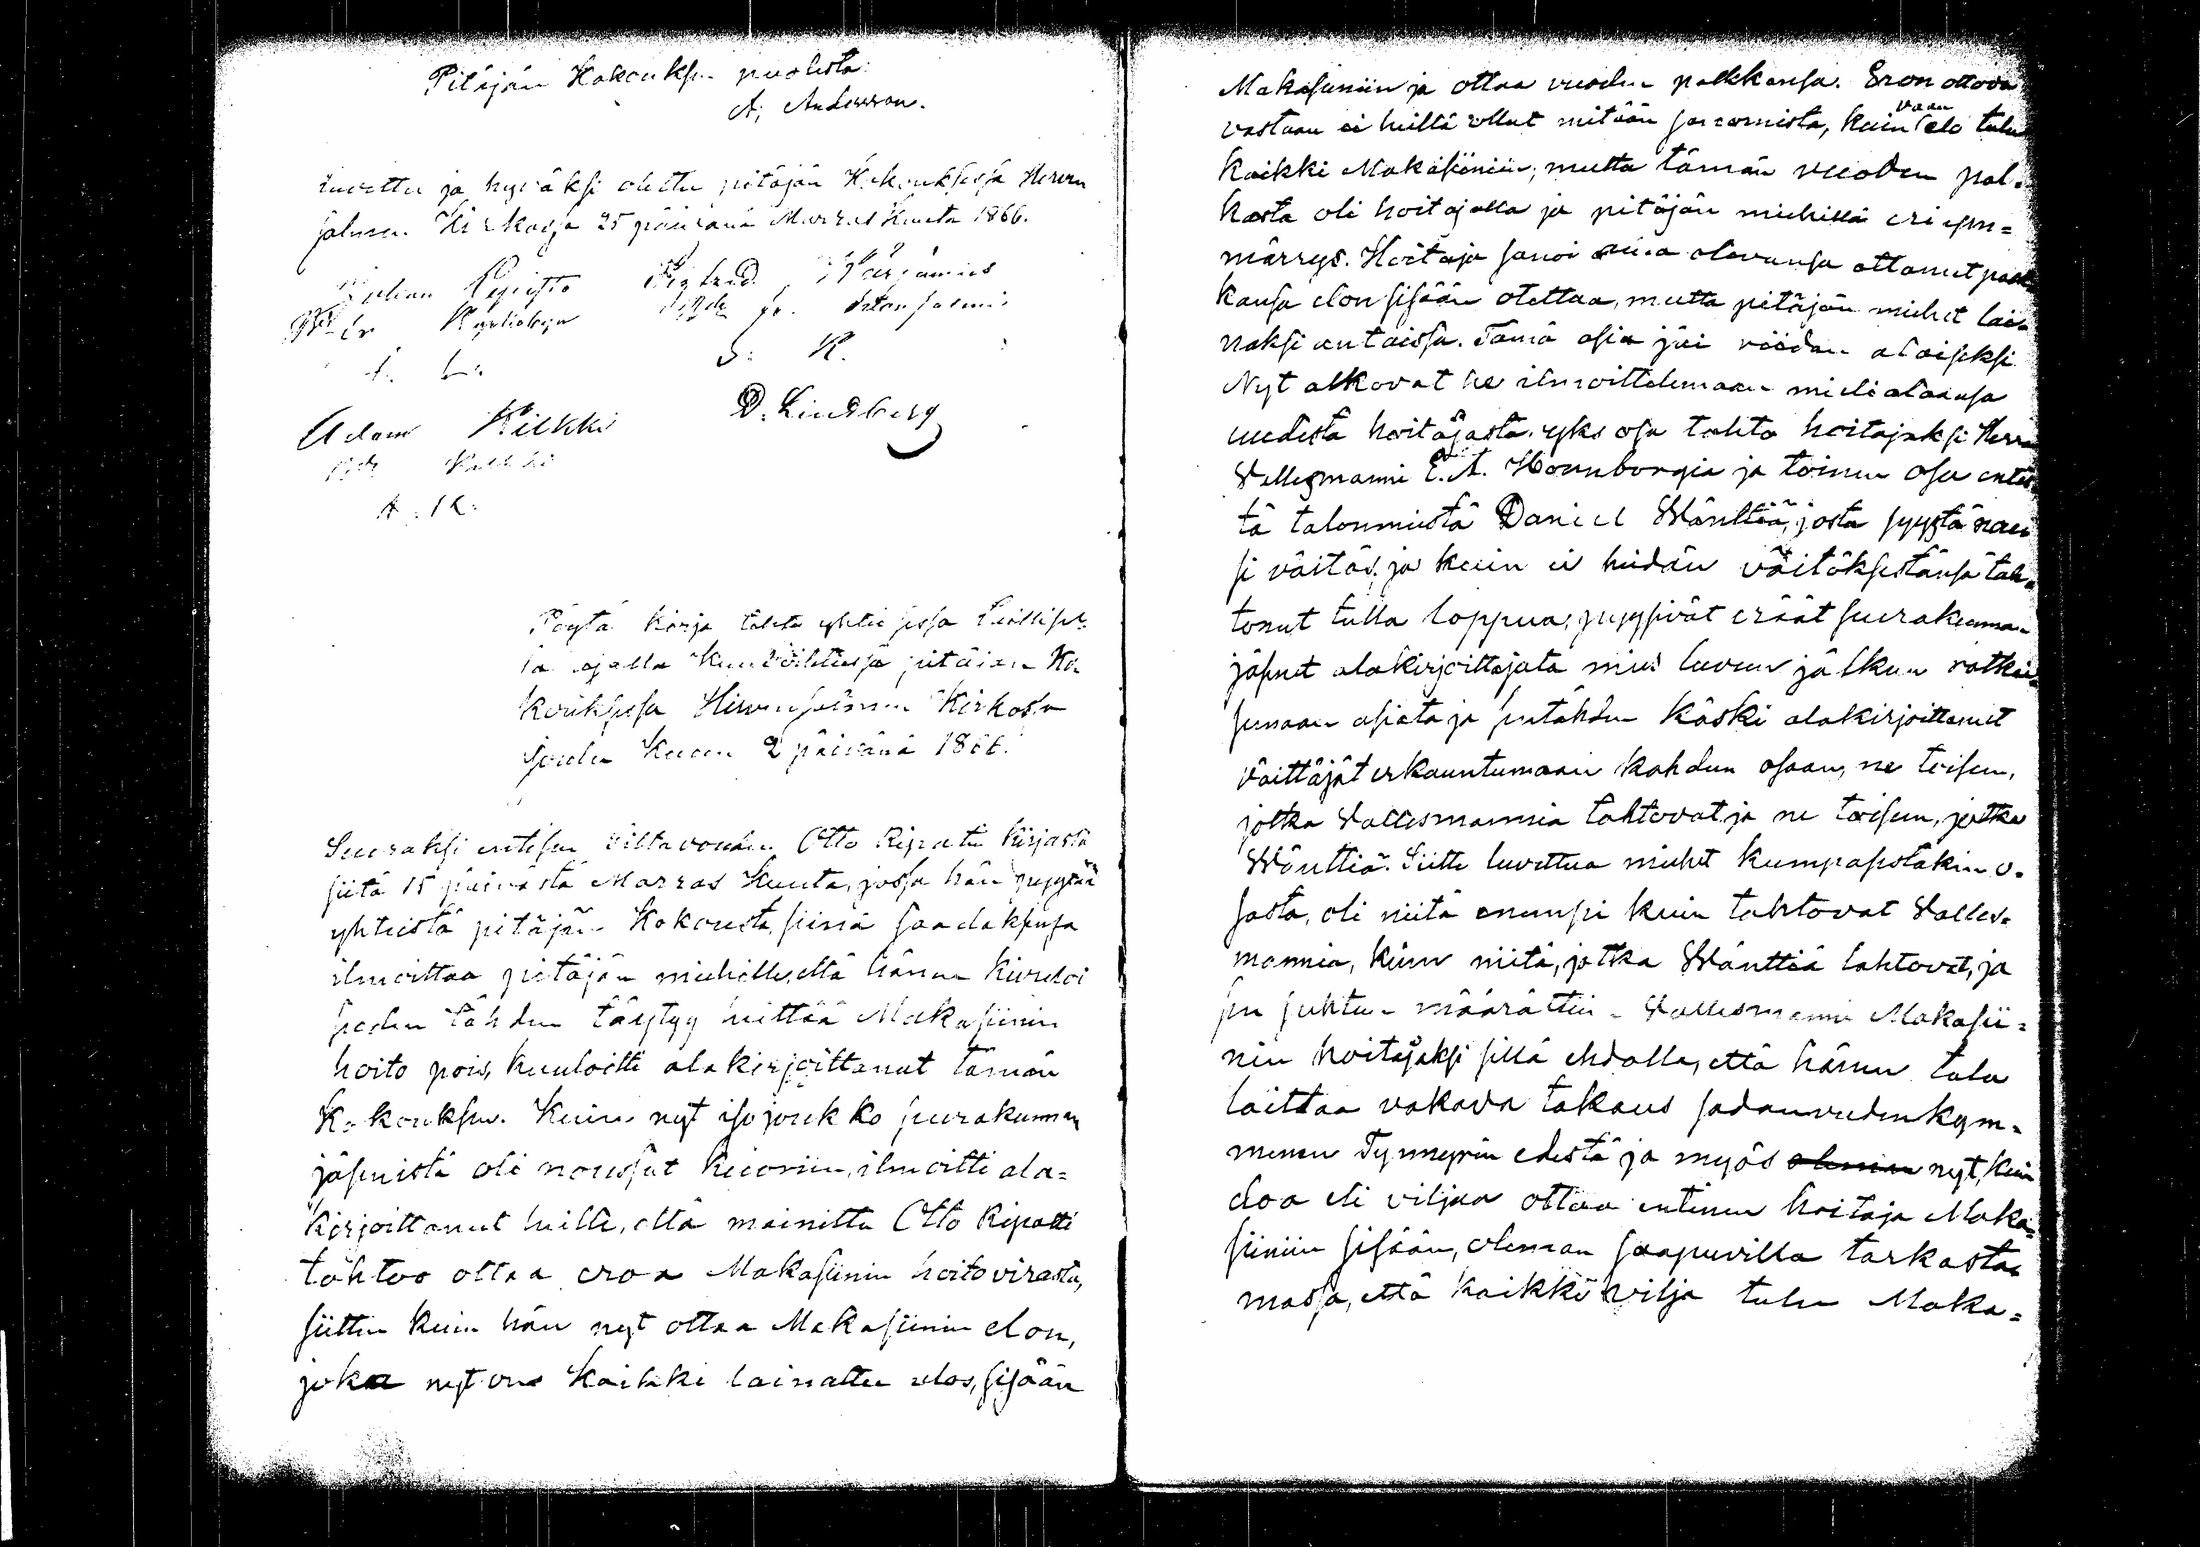 Pitäjän Kokouksen puolesta:
A. Andersson.
luvettu ja hyväksi otettu pitäjän Kokouksessa Hirven
salmen Kirkossa 25 päivänä Marras Kuuta 1866.
Juhan Repisto
Adam Kilkki
D. Lindberg
A. K.
S: K.
Pöytä kirja tehty yhteisessä laillisel-
la ajalla kuuloitetussa pitäjän Ko-
kouksessa Hirvensalmen Kirkossa
Joulu Kuun 2 päivänä 1866.
Seuraksi entisen siltavoudin Otto Ripatin kirjasta
siitä 15 päivästä Marras Kuuta, jossa hän pyytää
yhteistä pitäjän Kokousta, siinä saadaksensa
ilmoittaa pitäjän miehille, että hänen kivuloi
suuden tähden täytyy heittää Makasiinin
hoito pois, kuuloitti alakirjoittanut tämän
Kokouksen. Kuin nyt iso joukko seurakunnan
jäsenistä oli noussut kuoriin, ilmoitti ala=
kirjoittanut heille, että mainittu Otto Ripatti
tahtoo ottaa eroa Makasiinin hoitovirasta,
siitten kuin hän nyt ottaa Makasiinin elon,
joka nyt on kaikki lainattu ulos, sisään
Makasiiniin ja ottaa vuoden palkkansa. Eron ottova
vastaan ei heillä ollut mitään sanomista, kuin vaan elo tulee
kaikki Makasiiniin; mutta tämän vuoden pal-
kasta oli hoitajalla ja pitäjän miehillä eri ym=
märrys. Hoitaja sanoi aina olevansa ottanut palk
kansa elon sisään otettaa, mutta pitäjän miehet lai-
naksi antaissa. Tämä asia jäi riidan alaiseksi.
Nyt alkovat he ilmoittelemaan mielialaansa
uudesta hoitajasta. yks osa tahto hoitajaksi Herra
Vallesmanni E. A. Hornborgia ja toinen osa entis
tä talonmiestä Daniel Wänttiä, josta syystä nou
si väitös, ja kuin ei heidän väitöksestänsä tah-
tonut tulla loppua, pyysivät eräät seurakunnan
jäsenet alakirjoittajata mies luvun jälkeen ratkai-
semaan asiata ja sentähden käski alakirjoittanut
väittäjät erkauntumaan kahden osaan, ne toiseen,
jotka Vallesmannia tahtovat, ja ne toiseen, jotka
Wänttiä. Siitte luvettua miehet kumpasestakin o-
sasta, oli niitä enempi kuin tahtovat Valles-
mannia, kuin niitä, jotka Wänttiä tahtovat, ja
sen suhteen määrättiin Vallesmanni Makasii=
nin hoitajaksi sillä ehdolla, että hänen tulee
laittaa vakava takaus sadanviidenkym-
menen Tynnyrin edestä ja myös nyt, kuin
eloa eli viljaa ottaa entinen hoitaja Maka=
siiniin sisään, oleman saapuvilla tarkasta-
massa, että kaikki vilja tulee Maka=